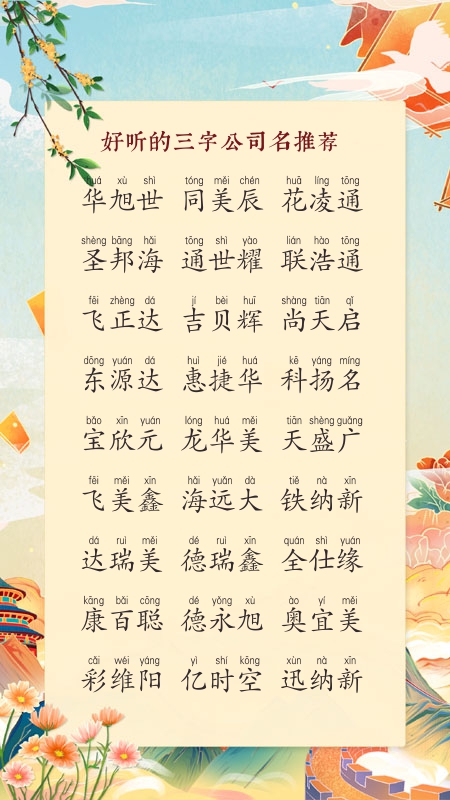 好听的三字公司名推荐
huá xù shì tóng měi chén huā líng tōng
华旭世 同美辰 花凌通
shèng bāng hǎi tōng shì yào lián hào tōng
圣邦海 通世耀 联浩通
fēi zhèng dá jí bèi huī shàng tiān qǐ
飞正达 吉贝辉 尚天启
dōng yuán dá huì jié huá kē yáng míng
东源达 惠捷华 科扬名
bǎo xīn yuán lóng huá měi tiān shèng guǎng
宝欣元 龙华美 天盛广
fēi měi xīn hǎi yuǎn dà tiě nà xīn
飞美鑫 海远大 铁纳新
dá ruì měi dé ruì xīn quán shì yuán
达瑞美 德瑞鑫 全仕缘
kāng bǎi cōng dé yǒng xù ào yí měi
康百聪 德永旭 奥宜美
cǎi wéi yáng yì shí kōng xùn nà xīn
彩维阳 亿时空 迅纳新